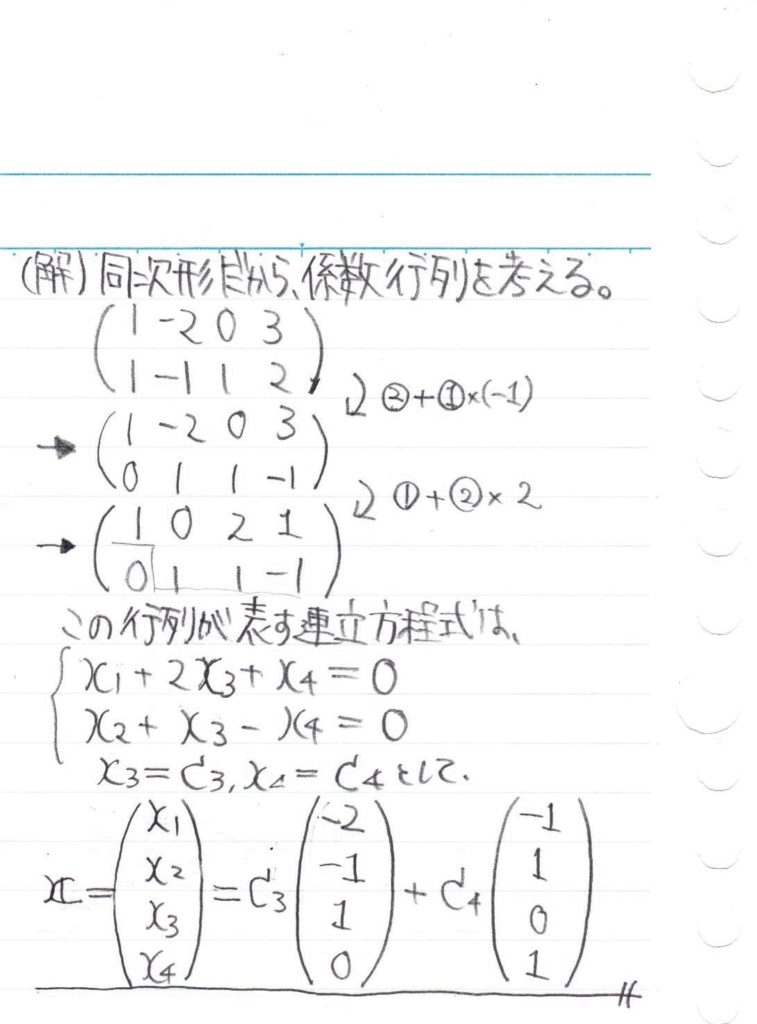 (解) 同次形だから、係数行列を考える。
1 -2 0 3
1 -1 1 2
②+①×(-1)
→ 1 -2 0 3
0 1 1 -1
①+②×2
→ 1 0 2 1
0 1 1 -1
この行列が表す連立方程式は、
x₁ + 2x₃ + x₄ = 0
x₂ + x₃ - x₄ = 0
x₃ = C₃, x₄ = C₄ として、
x = (x₁ x₂ x₃ x₄) = C₃ (-2 -1 1 0) + C₄ (-1 1 0 1)